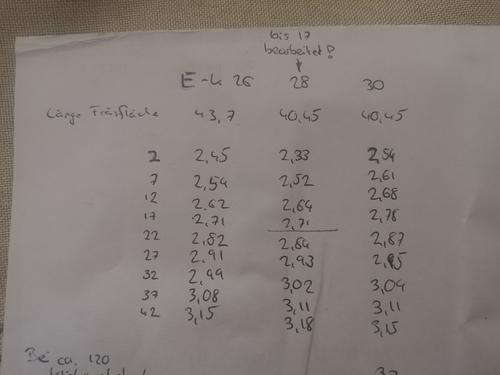 bis 17
bearbeitet?
E-k 26 28 30
Länge Fräsfläche 43,7 40,45 40,45
2 2,45 2,33 2,54
7 2,54 2,52 2,61
12 2,62 2,64 2,68
17 2,71 2,71 2,78
22 2,82 2,84 2,87
27 2,91 2,93 2,95
32 2,99 3,02 3,04
37 3,08 3,11 3,11
42 3,15 3,18 3,15
Bei ca. 120